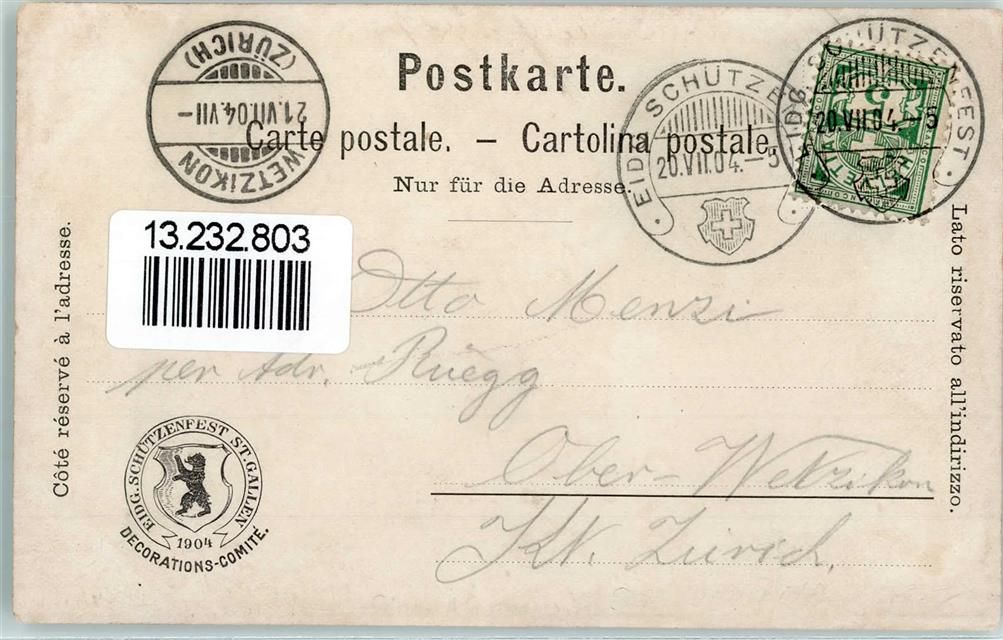 Postkarte.
Carte postale. – Cartolina postale.
Nur für die Adresse.
WETZIKON
21.VII.04.VII–
(ZÜRICH)
EIDG. SCHÜTZENFEST
20.VII.04.–5
EIDG. SCHÜTZENFEST
20.VII.04–5
HELVETIA
5
13.232.803
Côté réservé à l'adresse.
Lato riservato all'indirizzo.
Otto Menzi
per Adr. Rüegg
Ober-Wetzikon
Kt. Zürich.
EIDG. SCHÜTZENFEST ST. GALLEN
1904
DECORATIONS-COMITÉ.